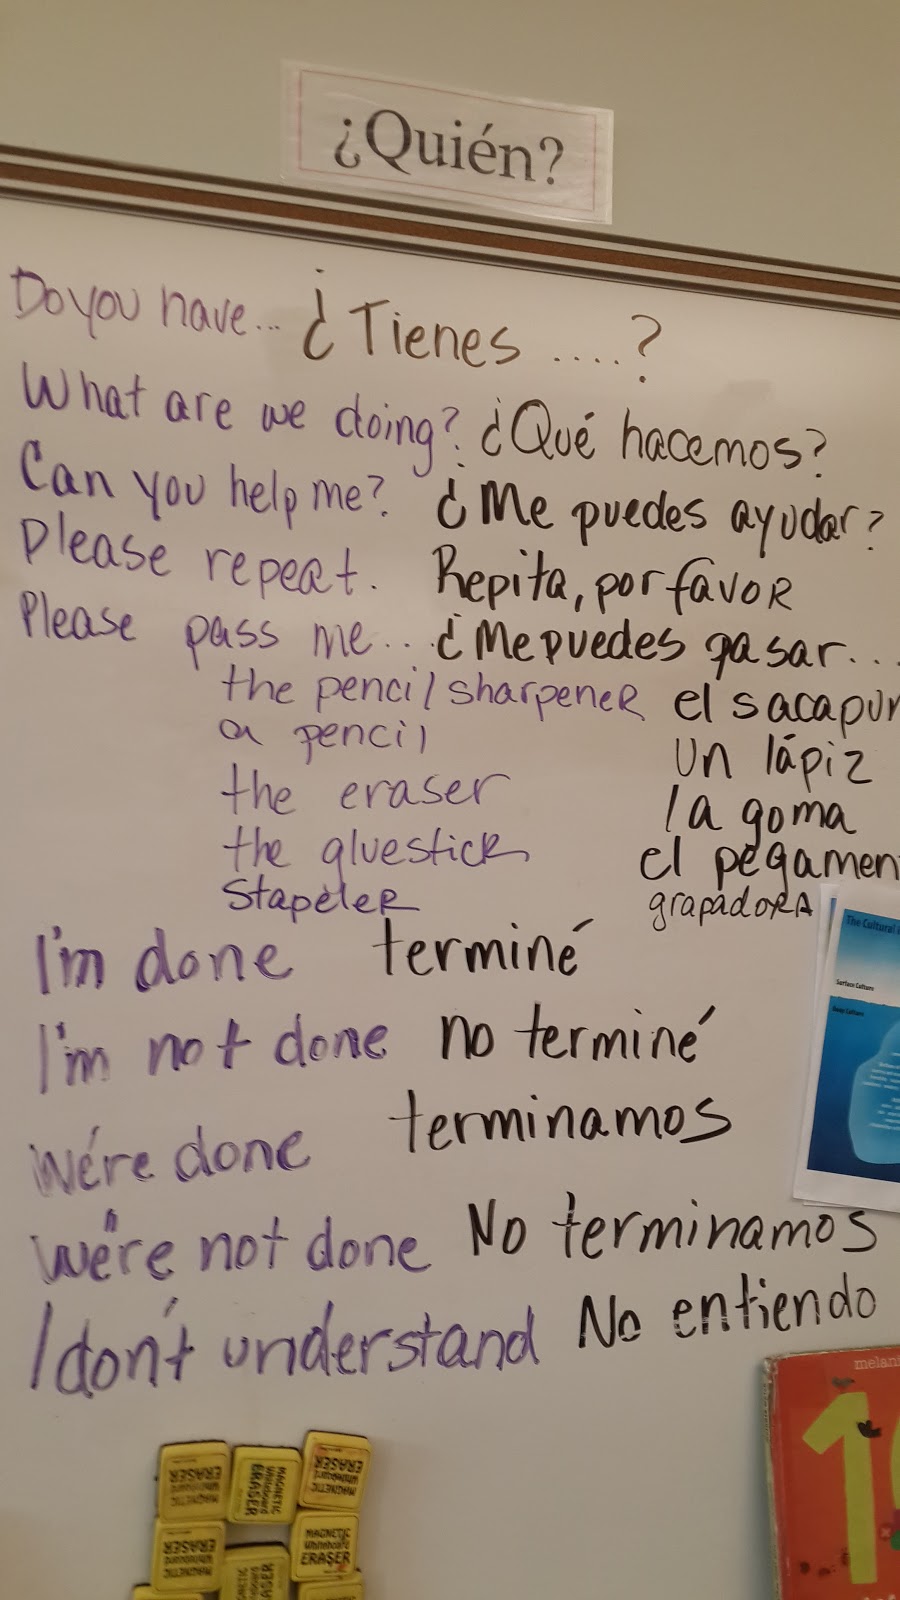 ¿Quién?
Do you have... ¿Tienes ....?
What are we doing? ¿Qué hacemos?
Can you help me? ¿Me puedes ayudar?
Please repeat. Repita, por favor
Please pass me... ¿Me puedes pasar...
the pencil sharpener el sacapun
a pencil un lápiz
the eraser la goma
the gluestick el pegamen
stapeler grapadora
I'm done terminé
I'm not done no terminé
We're done terminamos
We're not done No terminamos
I don't understand No entiendo
The Cultural
Surface Culture
Deep Culture
melani
1
MAGNETIC Whiteboard ERASER
MAGNETIC Whiteboard ERASER
MAGNETIC Whiteboard ERASER
MAGNETIC Whiteboard ERASER
MAGNETIC Whiteboard ERASER
ERASER